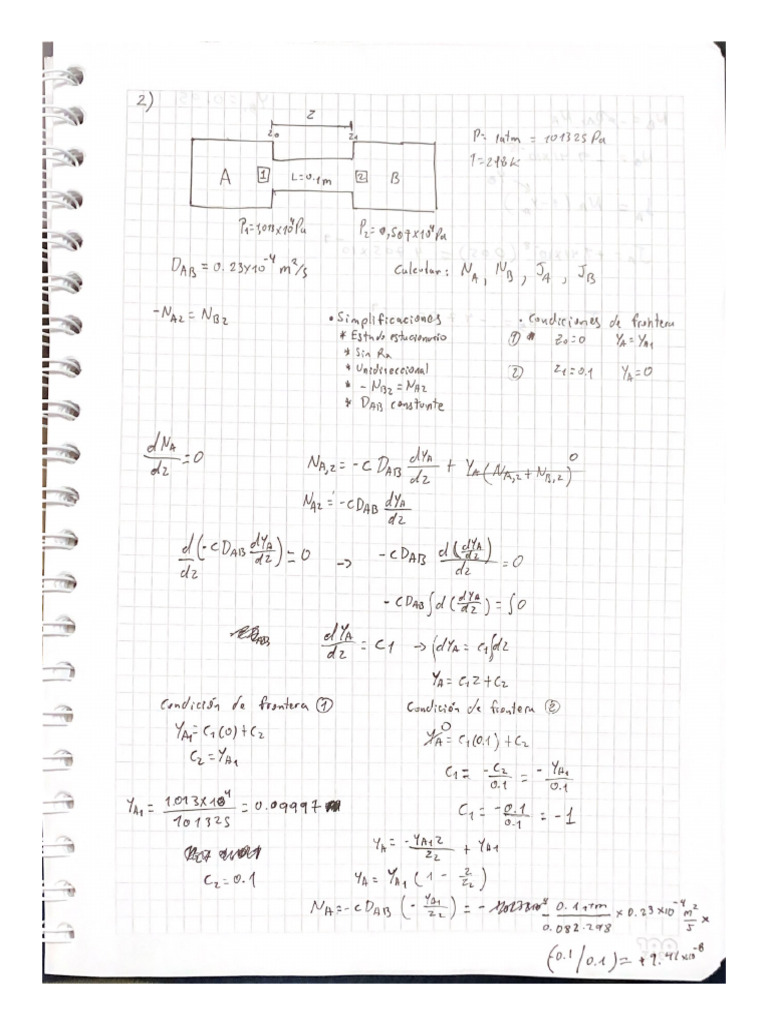 2)
Z
z0 z1
A 1 L=0.1m 2 B
P1=1,013x10^4 Pa P2=0,507x10^4 Pa
P= 1atm = 101325 Pa
T=298K
D_AB = 0.23x10^-4 m^2/s
Calcular: N_A, N_B, J_A, J_B
-N_Az = N_Bz
• Simplificaciones
* Estado estacionario
* Sin Rn
* Unidireccional
* -N_Bz = N_Az
* D_AB constante
• Condiciones de frontera
① z0=0 Y_A=Y_A1
② z1=0.1 Y_A=0
dN_A/dz = 0
N_A,z = -c D_AB dY_A/dz + Y_A(N_A,z + N_B,z) 0
N_Az = -cD_AB dY_A/dz
d/dz (-cD_AB dY_A/dz) = 0 → -cD_AB d(dY_A/dz)/dz = 0
-cD_AB ∫d(dY_A/dz) = ∫0
dY_A/dz = C1 → ∫dY_A = C1∫dz
Y_A = C1z + C2
Condición de frontera ①
Y_A1 = C1(0) + C2
C2 = Y_A1
Y_A1 = 1.013x10^4/101325 = 0.09997
C2 = 0.1
Condición de frontera ②
Y_A 0 = C1(0.1) + C2
C1 = -C2/0.1 = -Y_A1/0.1
C1 = -0.1/0.1 = -1
Y_A = -Y_A1 z/z2 + Y_A1
Y_A = Y_A1 (1 - z/z2)
N_A = -cD_AB (-Y_A1/z2) = - 0.1atm/0.082·298 x 0.23x10^-4 m^2/s x
(0.1/0.1) = +9.41x10^-8